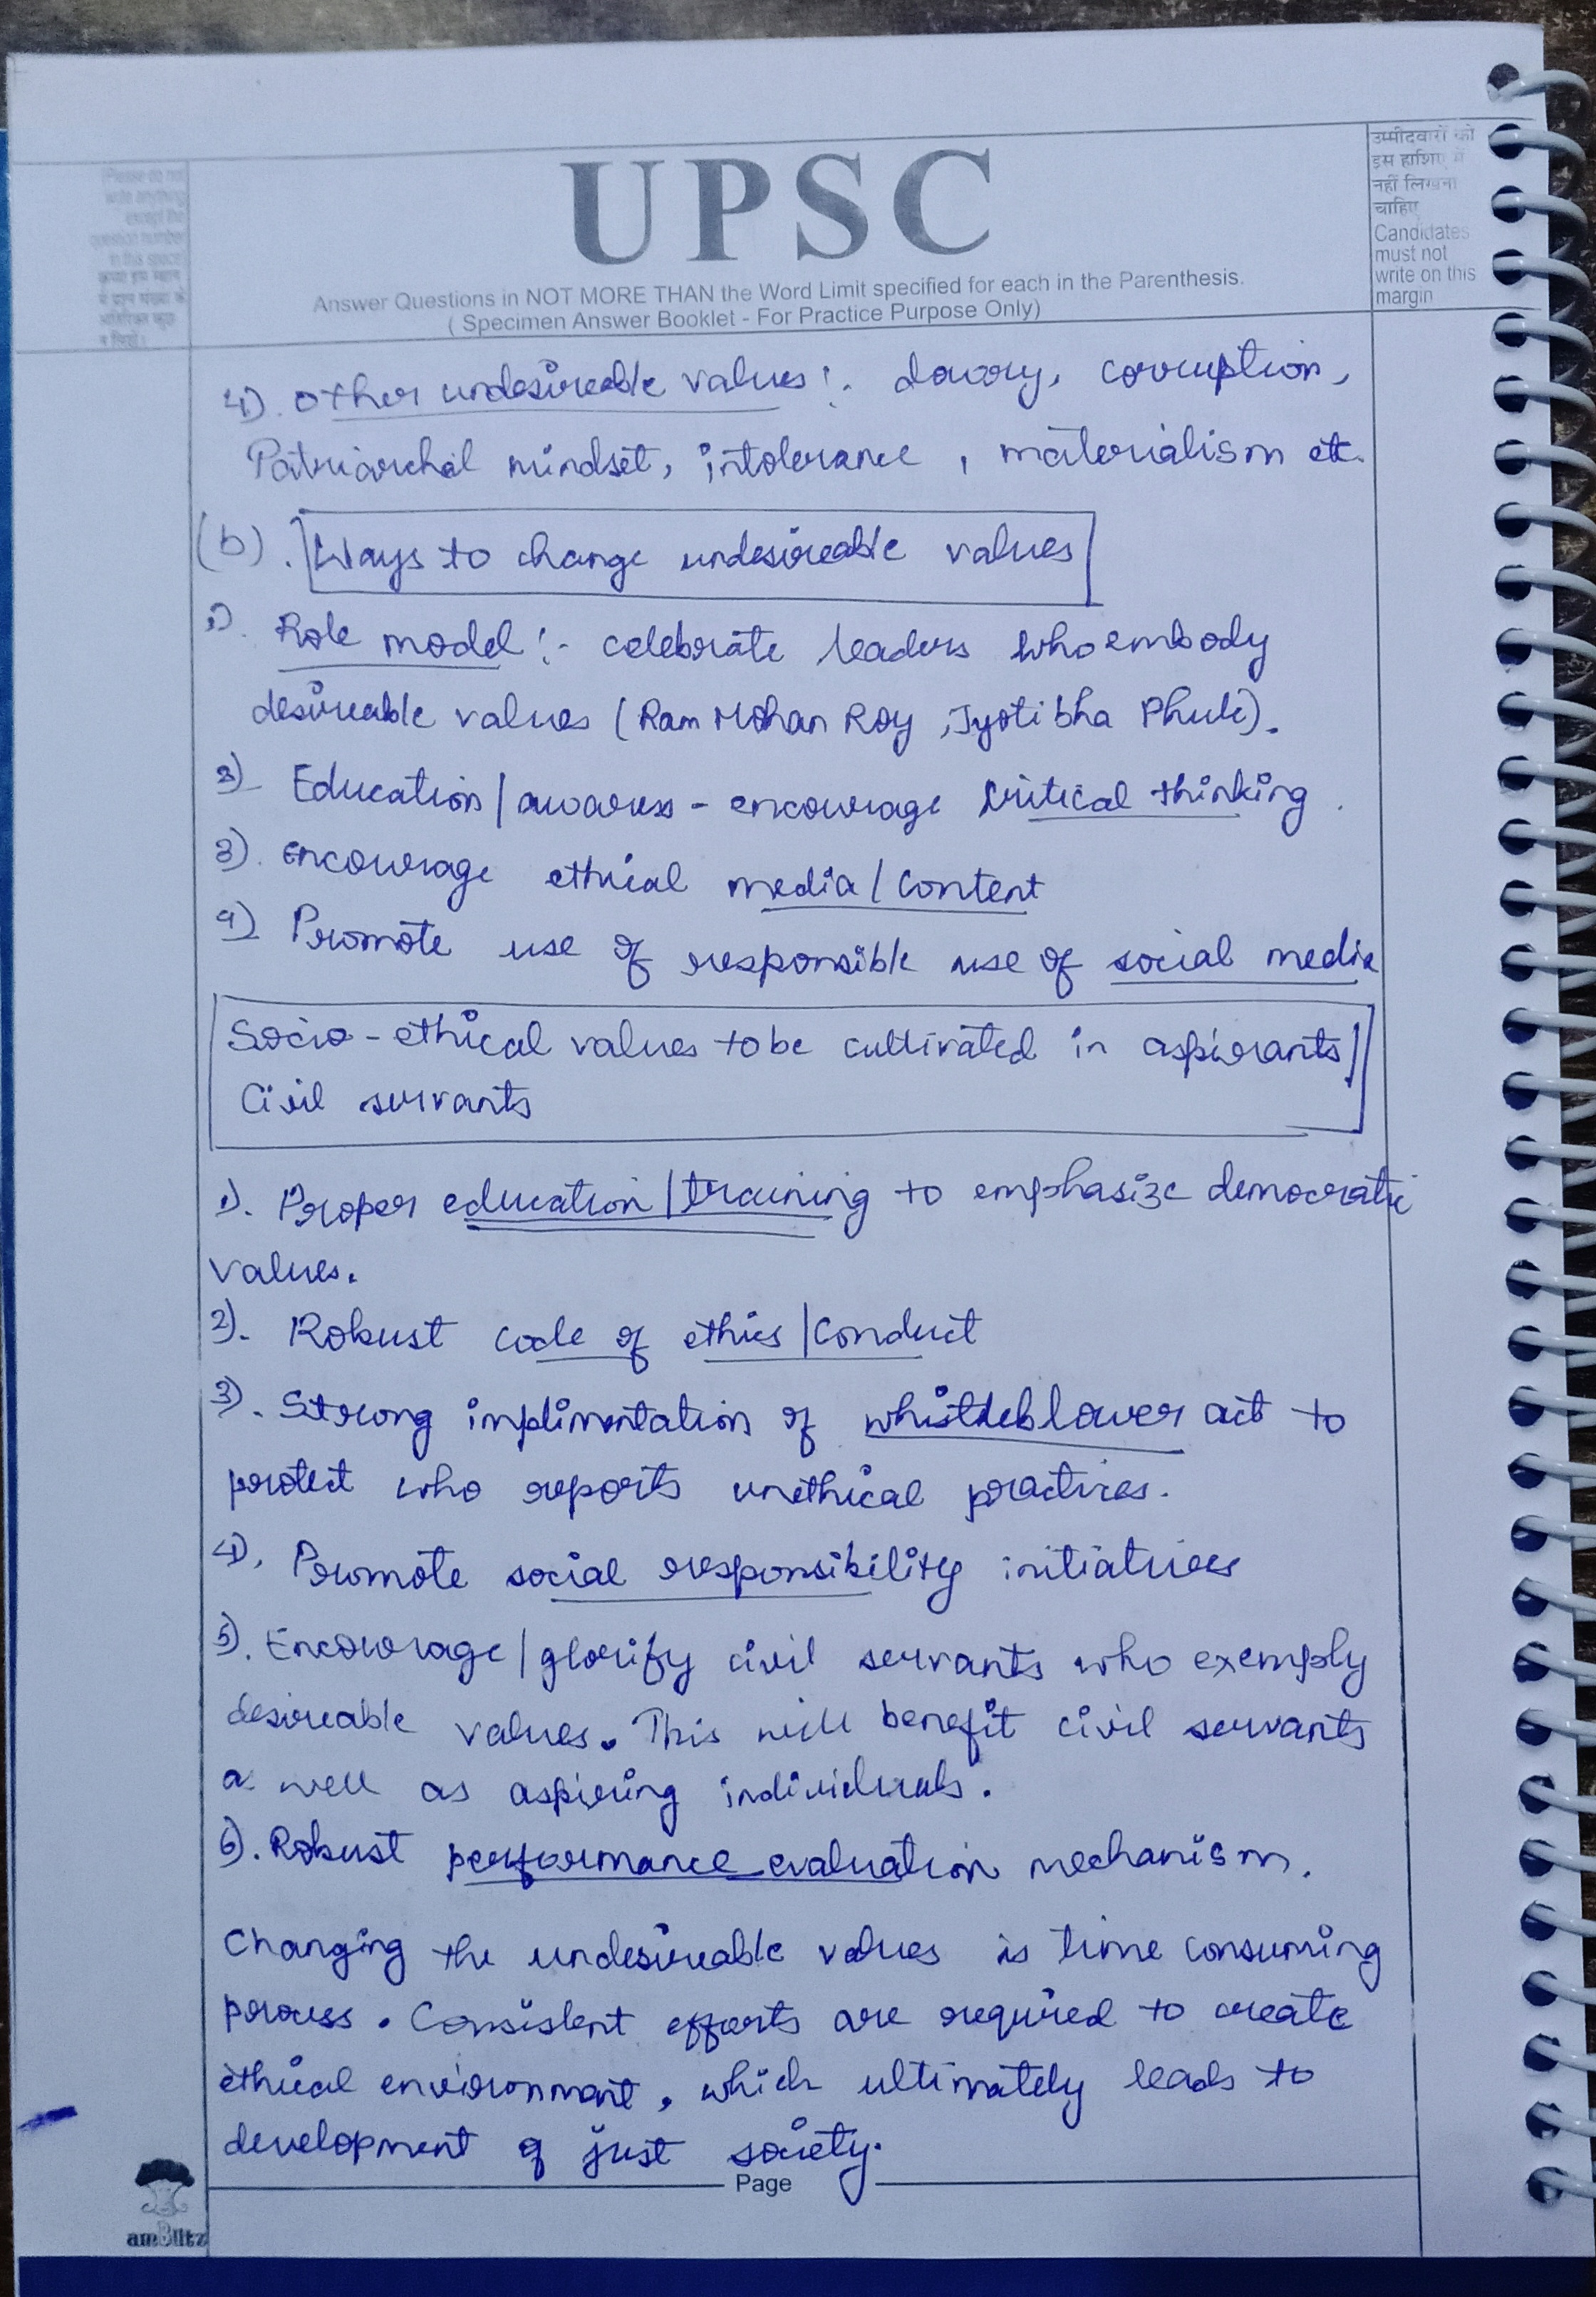 Please do not
write anything
except the
question number
in this space
कृपया इस स्थान
में प्रश्न संख्या के
अतिरिक्त कुछ
न लिखें।
UPSC
Answer Questions in NOT MORE THAN the Word Limit specified for each in the Parenthesis.
( Specimen Answer Booklet - For Practice Purpose Only)
उम्मीदवारों को
इस हाशिए में
नहीं लिखना
चाहिए
Candidates
must not
write on this
margin
4). Other undesireable values :. dowry, corruption,
Patriarchal mindset, intolerance , materialism etc.
(b). Ways to change undesireable values
1). Role model :- celebrate leaders who embody
desireable values (Ram Mohan Roy , Jyotibha Phule).
2) Education / awarness - encourage critical thinking .
3). encourage ethical media / content
4) Promote use of responsible use of social media
Socio - ethical values to be cultivated in aspirants /
Civil servants
1). Proper education / training to emphasize democratic
values.
2). Robust code of ethics / conduct
3). Strong implimentation of whistleblower act to
protect who reports unethical practices.
4). Promote social responsibility initiatives
5). Encourage / glorify civil servants who exemply
desireable values. This will benefit civil servants
as well as aspiring individuals.
6). Robust performance evaluation mechanism.
Changing the undesireable values is time consuming
process. Consistent efforts are required to create
ethical environment, which ultimately leads to
development of just society.
Page
amBlitz